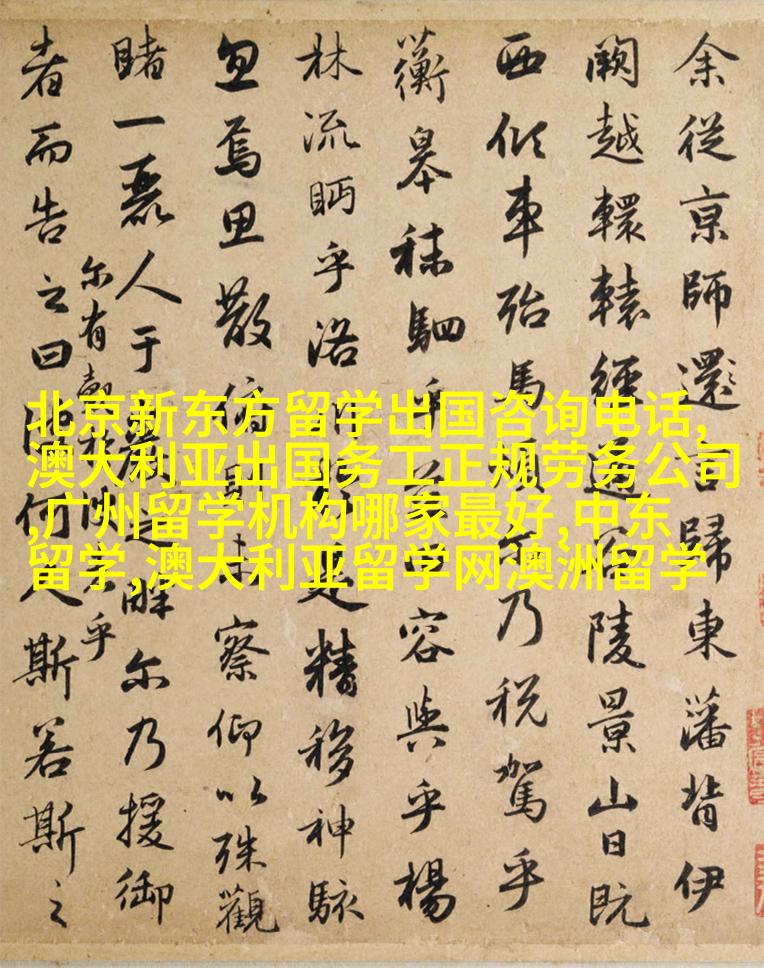 余從京師還言歸東藩背伊
闕越轘轅經通谷陵景山日既
西傾車殆馬煩尓乃税駕乎
蘅皋秣駟乎芝田容與乎楊
林流眄乎洛川於是精移神駭
忽焉思散俯則未察仰以殊觀
睹一麗人于巖之畔尓乃援御
者而告之曰
尓有乎
何人斯若斯之
北京新东方留学出国咨询电话,
澳大利亚出国务工正规劳务公司
,广州留学机构哪家最好,中东
留学,澳大利亚留学网澳洲留学